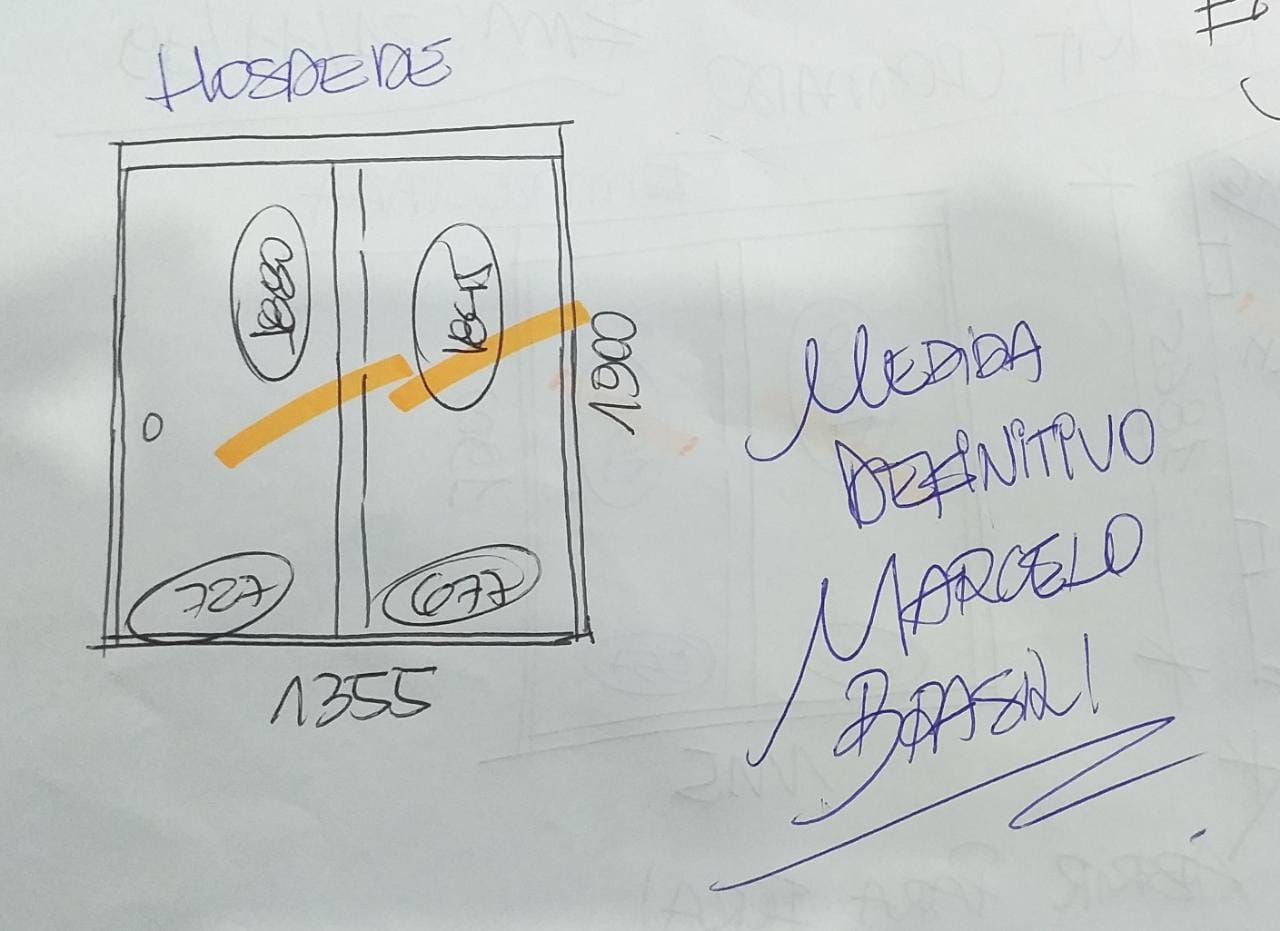 HOSPEDE
1880
1845
1900
727
677
1355
MEDIDA
DEFINITIVO
MARCELO
BRASIL!